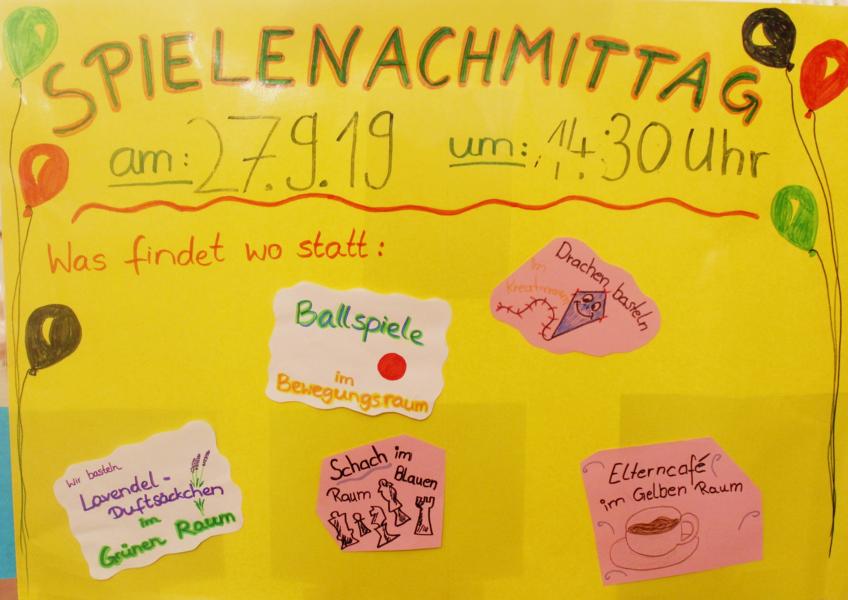 SPIELENACHMITTAG
am: 27.9.19 um: 14:30 Uhr
Was findet wo statt:
Ballspiele
im
Bewegungsraum
Drachen basteln
im
Kreativraum
Wir basteln
Lavendel-
Duftsäckchen
im
Grünen Raum
Schach im
Blauen
Raum
Elterncafé
im Gelben Raum